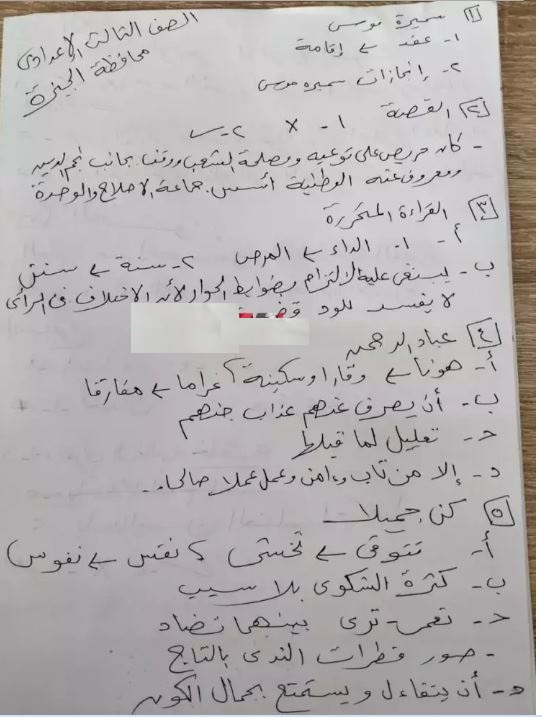 الصف الثالث الإعدادى
محافظة الجيزة
١ سميرة موسى
١- عقد ← إقامة
٢- إنجازات سميرة موسى
٢ القصة
١- × ٢- ✓
- كان حريص على توعية ومصلحة الشعب ووقف بجانب نجم الدين
ومعروف عنه الوطنية أسس جماعة الإصلاح والوحدة
٣ القراءة المتحررة
أ- ١- الداء ← المرض ٢- سنة ← سنن
ب- ينبغى علينا الالتزام بضوابط الحوار لأن الاختلاف فى الرأى
لا يفسد للود
٤ عباد الرحمن
أ- هوناً ← وقارا وسكينة، غراما ← مفارقا
ب- أن يصرف عنهم عذاب جهنم
حـ- تعليل لما قبلها
د- إلا من تاب وءامن وعمل عملا صالحا..
٥ كن جميلا
أ- تتوقى ← تخشى ، نفس ← نفوس
ب- كثرة الشكوى بلا سبب
حـ- تعمى - ترى بينهما تضاد
- صور قطرات الندى بالتاج
هـ- أن يتفاءل ويستمتع بجمال الكون